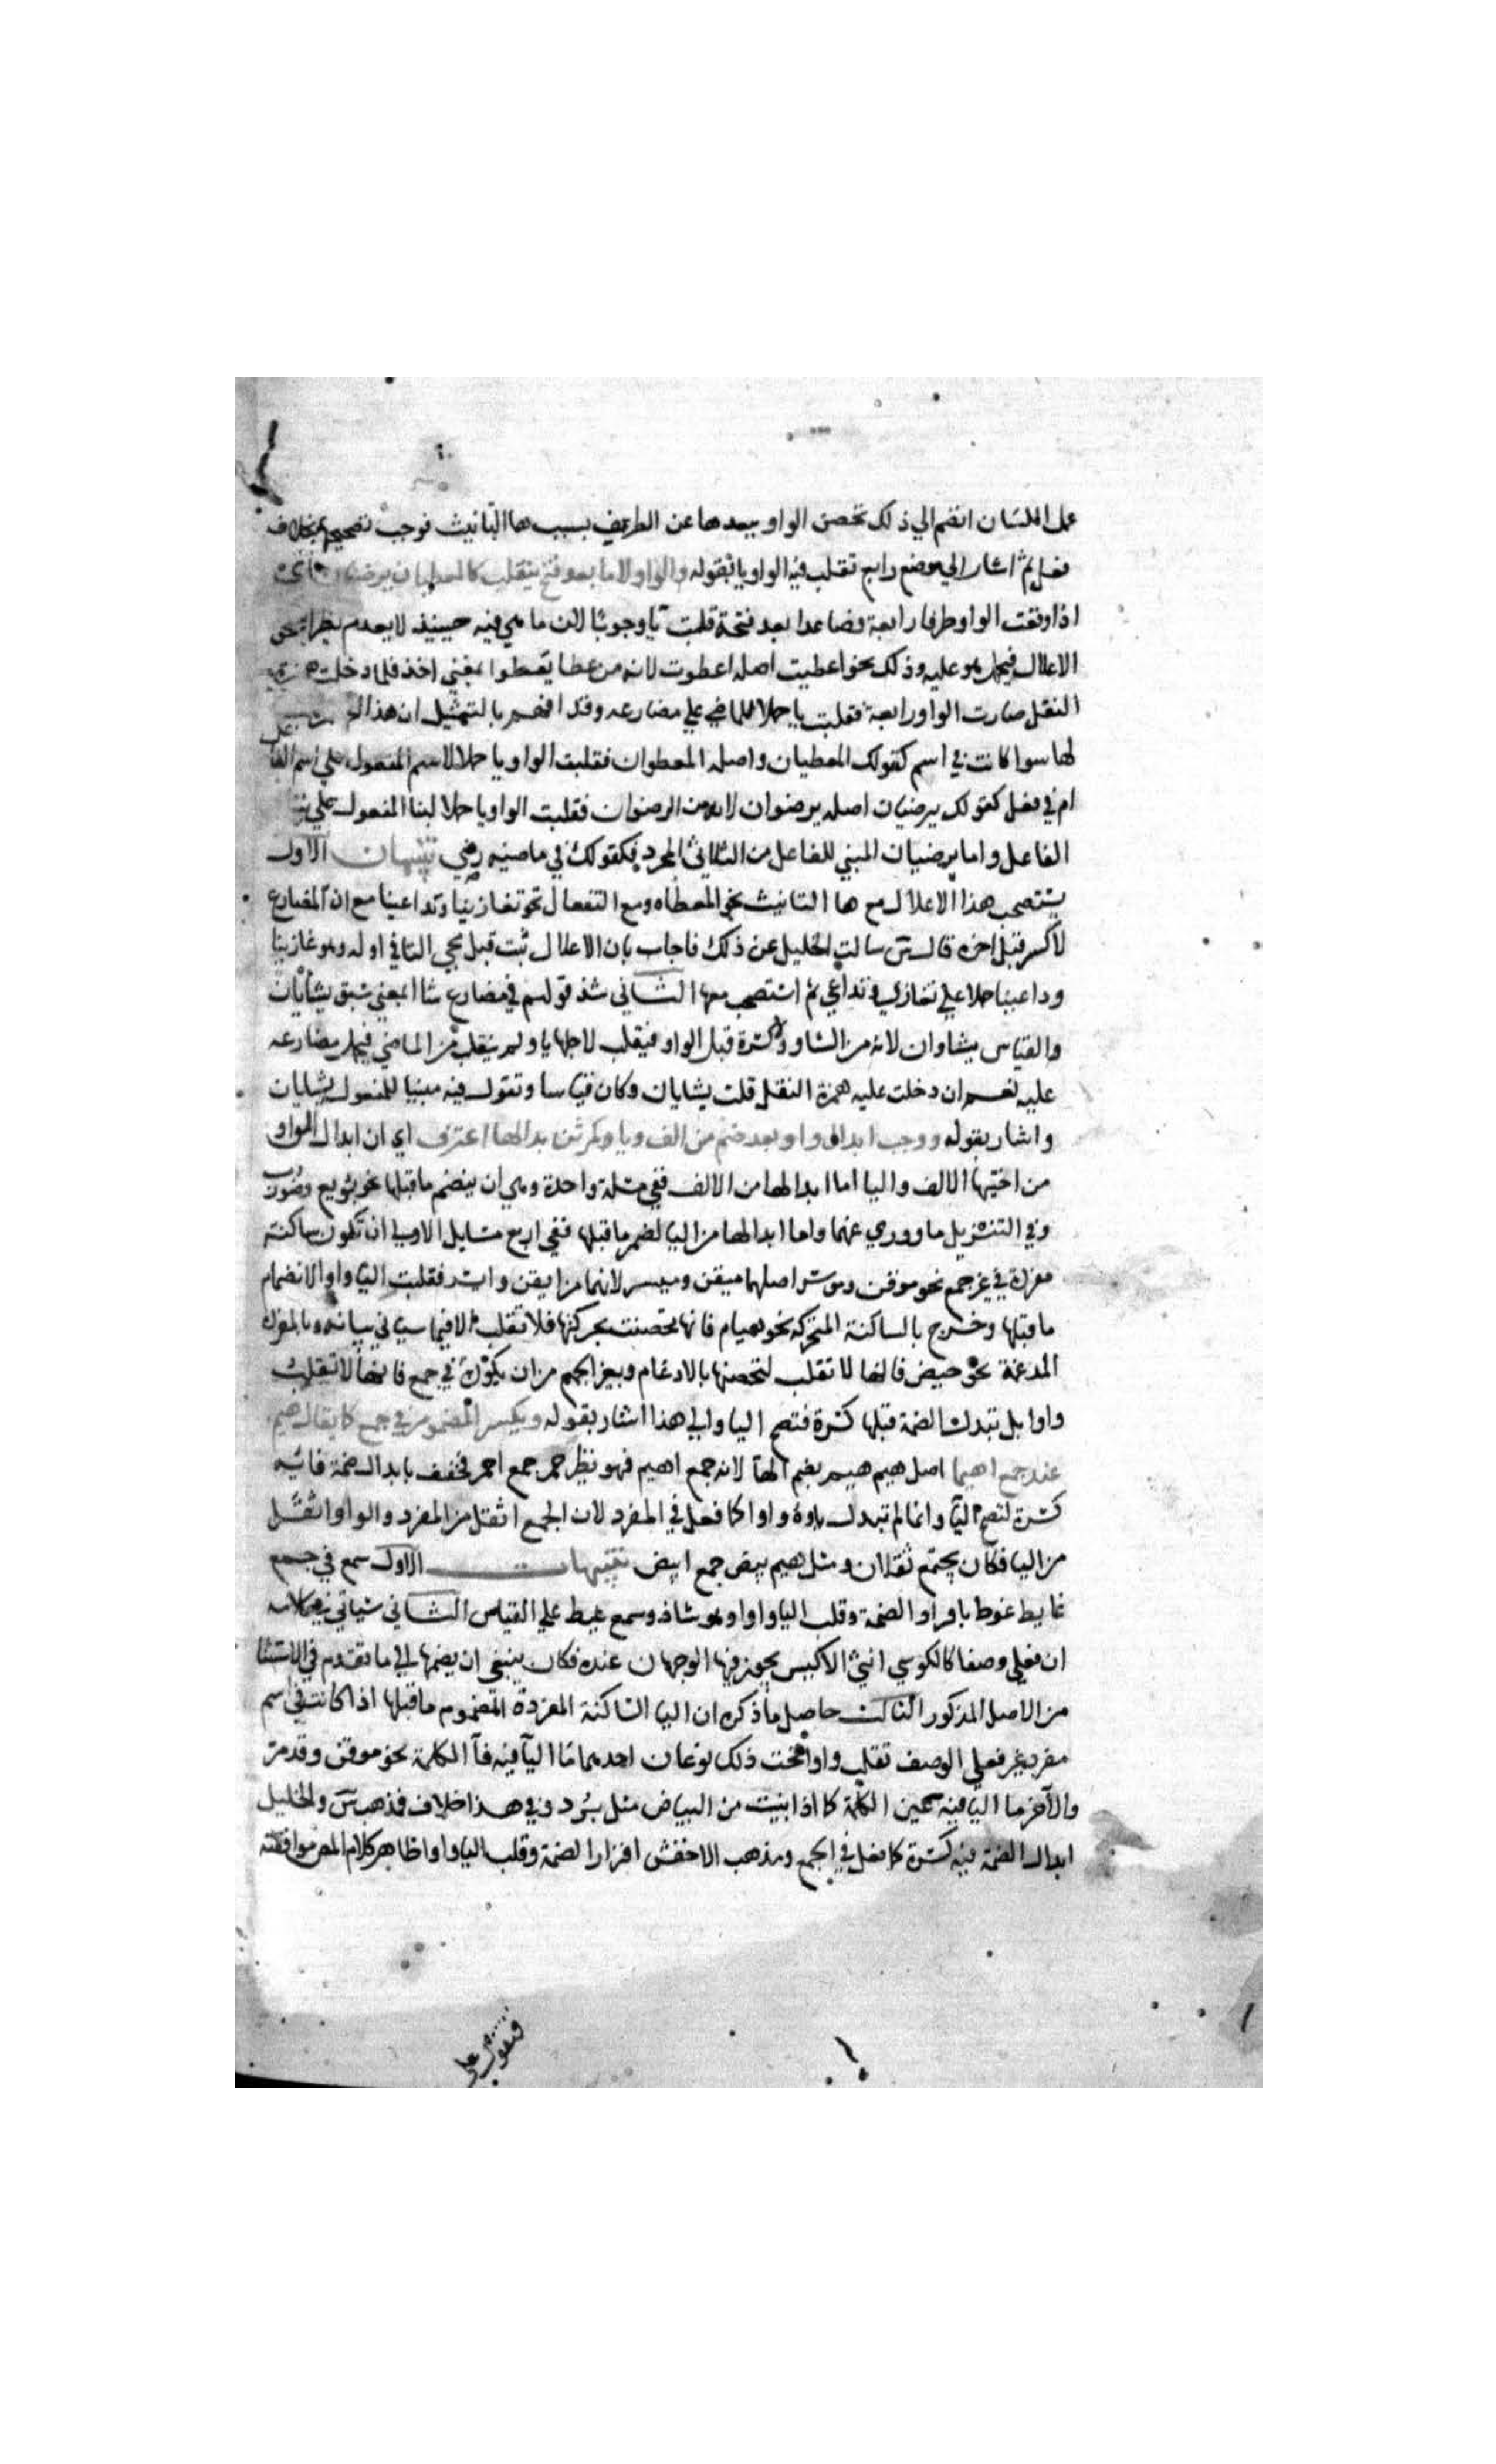 عمل اللسان انضم الي ذلك تحصن الواو ببعدها عن الطرف بسبب ها التانيث فوجب تصحيحها بخلاف
فعل ثم اشار الي موضع رابع تقلب فيه الواو يا بقوله والواو لاما بعد فتح ينقلب كالمعطيان يرضيان اي
اذا وقعت الواو طرفا رابعة فصاعدا بعد فتحة قلبت يا وجوبا لان ما هي فيه حينيذ لا يعدم نظيرا يستحق
الاعلال فيحمل هو عليه وذلك نحو اعطيت اصله اعطوت لانه من عطا يعطوا بمعني اخذ فلما دخلت همزة
النقل صارت الواو رابعة فقلبت يا حملا للماضي علي مضارعه وقد افهم بالتمثيل ان هذا
لها سوا كانت في اسم كقولك المعطيان واصله المعطوان فقلبت الواو يا حملا لاسم المفعول علي اسم الفاعل
ام في فعل كقولك يرضيان اصله يرضوان لانه من الرضوان فقلبت الواو يا حملا لبنا المفعول علي بنا
الفاعل واما يرضيان المبني للفاعل من الثلاثي المجرد فكقولك في ماضيه رضي تنبيهان الاول
يستصحب هذا الاعلال مع ها التانيث نحو المعطاه ومع التفعال نحو تغازينا وتداعينا مع ان المضارع
لا كسر قبل اخره قال س سالت الخليل عن ذلك فاجاب بان الاعلال ثبت قبل مجي التا في اوله وهو غازينا
وداعينا حملا علي نغازي ونداعي ثم استصحب معها الثاني شذ قولهم في مضارع شاا بمعني سبق يشايان
والقياس يشاوان لانه من الشاو ولا كسرة قبل الواو فيقلب لاجلها يا ولم ينقلب من الماضي فيحمل مضارعه
عليه نعم ان دخلت عليه همزة النقل قلت يشايان وكان قياسا وتقول فيه مبنيا للمفعول يشايان
واشار بقوله ووجب ابدال واو بعد ضم من الف ويا كموقن بدالها اعترف اي ان ابدال الواو
من اختيها الالف واليا اما ابدالها من الالف ففي مسلة واحدة وهي ان ينضم ما قبلها نحو بويع وضورب
وفي التنزيل ما ووري عنهما واما ابدالها من اليا لضم ما قبلها ففي اربع مسايل الاولي ان تكون ساكنة
مفردة في غير جمع نحو موقن وموسر اصلهما ميقن وميسر لانهما من ايقن وايسر فقلبت اليا واوا لانضمام
ما قبلها وخرج بالساكنة المتحركة نحو هيام فانها تحصنت بحركتها فلا تقلب الا فيما سياتي بيانه وبالمفردة
المدغمة نحو حيض فانها لا تقلب لتحصنها بالادغام وبغير الجمع من ان يكون في جمع فانها لا تقلب
واوا بل تبدل الضمة قبلها كسرة فتصح اليا والي هذا اشار بقوله ويكسر المضموم في جمع كما يقال هيم
عند جمع اهيما اصل هيم هيم بضم الها لانه جمع اهيم فهو نظير حمر جمع احمر فخفف بابدال ضمة فائيه
كسرة لتصح اليا وانما لم تبدل ياوه واوا كما فعل في المفرد لان الجمع اثقل من المفرد والواو اثقل
من اليا فكان يجتمع ثقلان ومثل هيم بيض جمع ابيض تنبيهات الاول سمع في جمع
غايط غوط باقرار الضمة وقلب اليا واوا وهو شاذ وسمع غيط علي القياس الثاني سياتي في كلامه
ان فعلي وصفا كالكوسي انثي الاكيس يجوز فيها الوجهان عنده فكان ينبغي ان يضمها الي ما تقدم في الاستثنا
من الاصل المذكور الثالث حاصل ما ذكره ان اليا الساكنة المفردة المضموم ما قبلها اذا كانت في اسم
مفرد غير فعلي الوصف تقلب واوا فتحت ذلك نوعان احدهما ما اليا فيه فا الكلمة نحو موقن وقد مر
والاخر ما اليا فيه عين الكلمة كما اذا بنيت من البياض مثل برد وفي هذا خلاف فمذهب س والخليل
ابدال الضمة فيه كسرة كما فعل في الجمع ومذهب الاخفش اقرار الضمة وقلب اليا واوا ظاهر كلام المص موافقته
فنقول علي